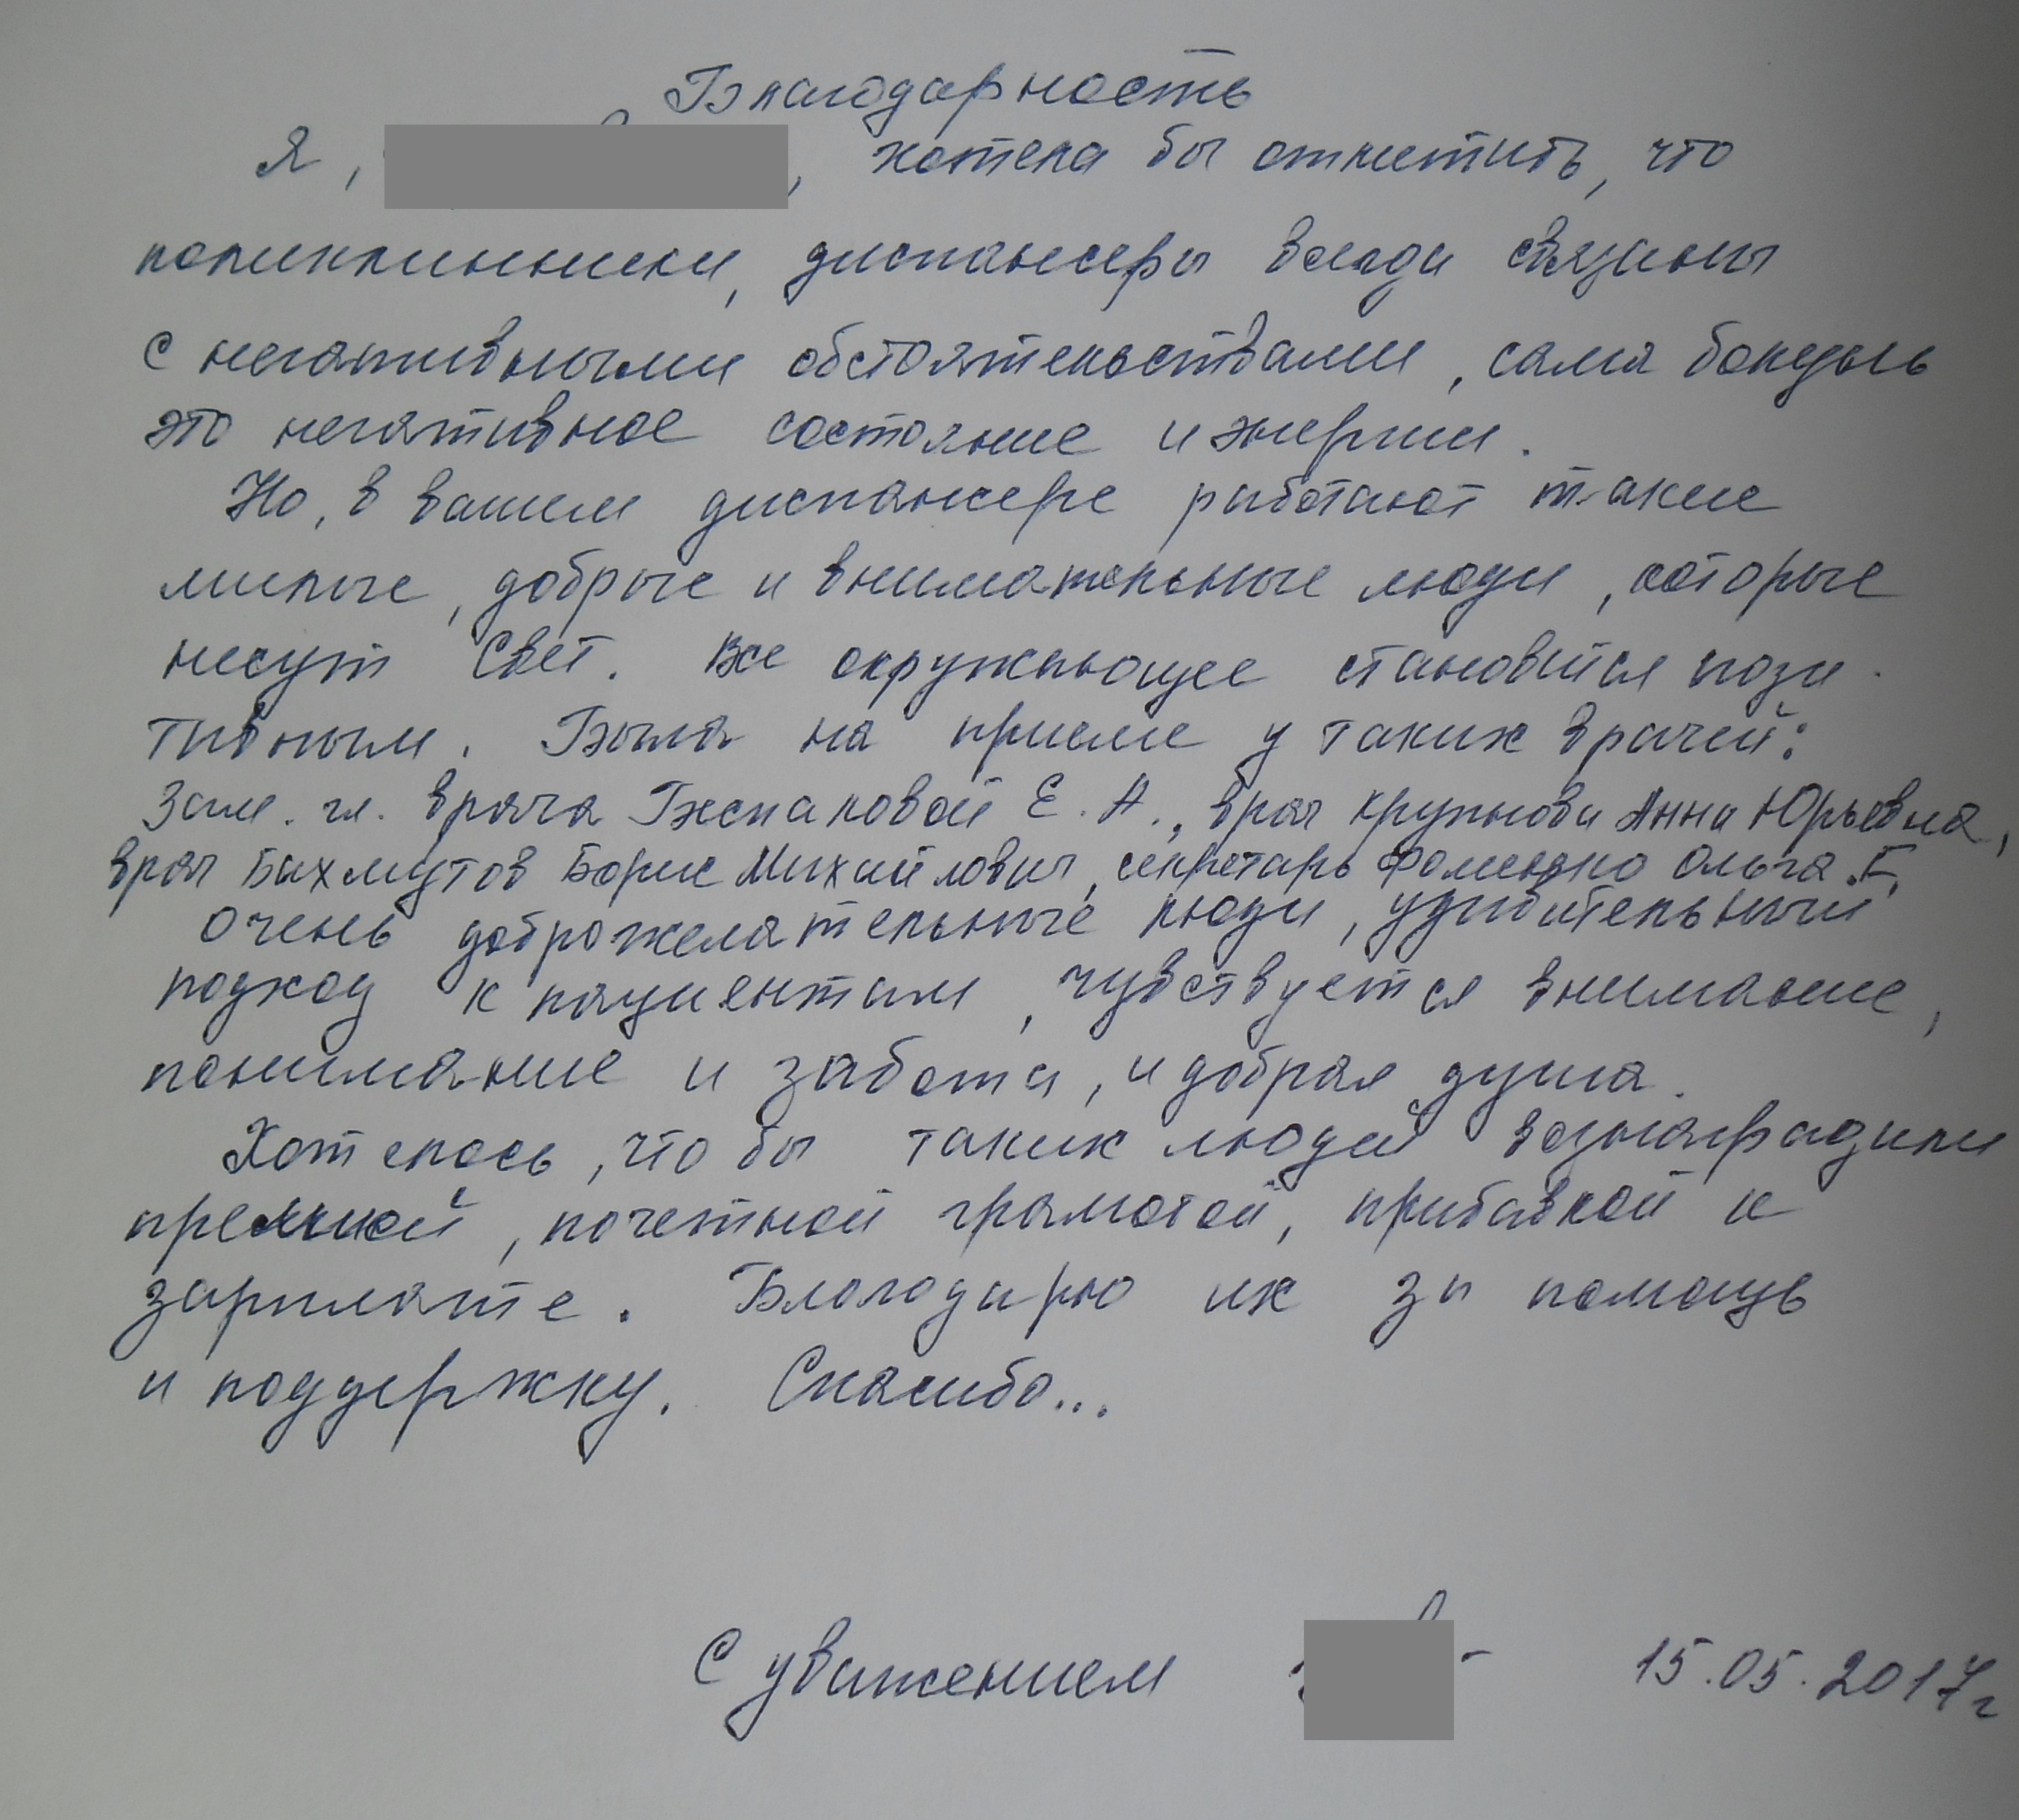 Благодарность
Я, , хотела бы отметить, что
поликлинники, диспансеры всегда связаны
с негативными обстоятельствами, сама болезнь
это негативное состояние и энергии.
Но, в вашем диспансере работают такие
милые, добрые и внимательные люди, которые
несут Свет. Все окружающее становится пози-
тивным. Была на приеме у таких врачей:
Зам. гл. врача Беспаловой Е. А., врач Крупнова Анна Юрьевна,
врач Бахмутов Борис Михайлович, секретарь Фоменко Ольга Г.
Очень доброжелательные люди, удивительный
подход к пациентам, чувствуется внимание,
понимание и забота, и добрая душа.
Хотелось, что бы таких людей вознаградили
премией, почетной грамотой, прибавкой к
зарплате. Благодарю их за помощь
и поддержку. Спасибо...
С уважением 15.05.2017г